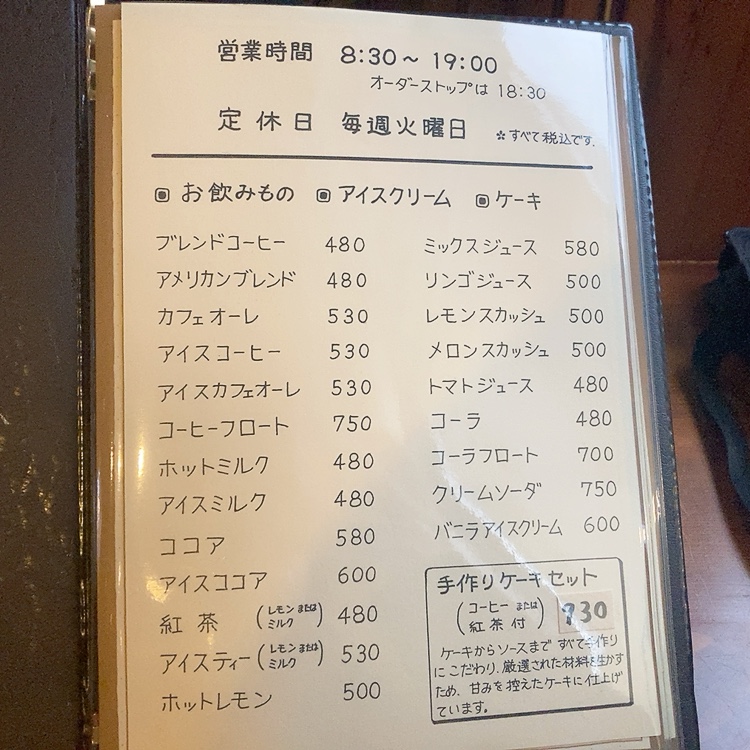 営業時間 8:30～19:00
オーダーストップは 18:30
定休日 毎週火曜日 *すべて税込です.
お飲みもの アイスクリーム ケーキ
ブレンドコーヒー 480
アメリカンブレンド 480
カフェオーレ 530
アイスコーヒー 530
アイスカフェオーレ 530
コーヒーフロート 750
ホットミルク 480
アイスミルク 480
ココア 580
アイスココア 600
紅茶 (レモンまたはミルク) 480
アイスティー (レモンまたはミルク) 530
ホットレモン 500
ミックスジュース 580
リンゴジュース 500
レモンスカッシュ 500
メロンスカッシュ 500
トマトジュース 480
コーラ 480
コーラフロート 700
クリームソーダ 750
バニラアイスクリーム 600
手作りケーキセット
(コーヒーまたは紅茶付) 930
ケーキからソースまですべて手作り
にこだわり、厳選された材料を生かす
ため、甘みを控えたケーキに仕上げ
ています。